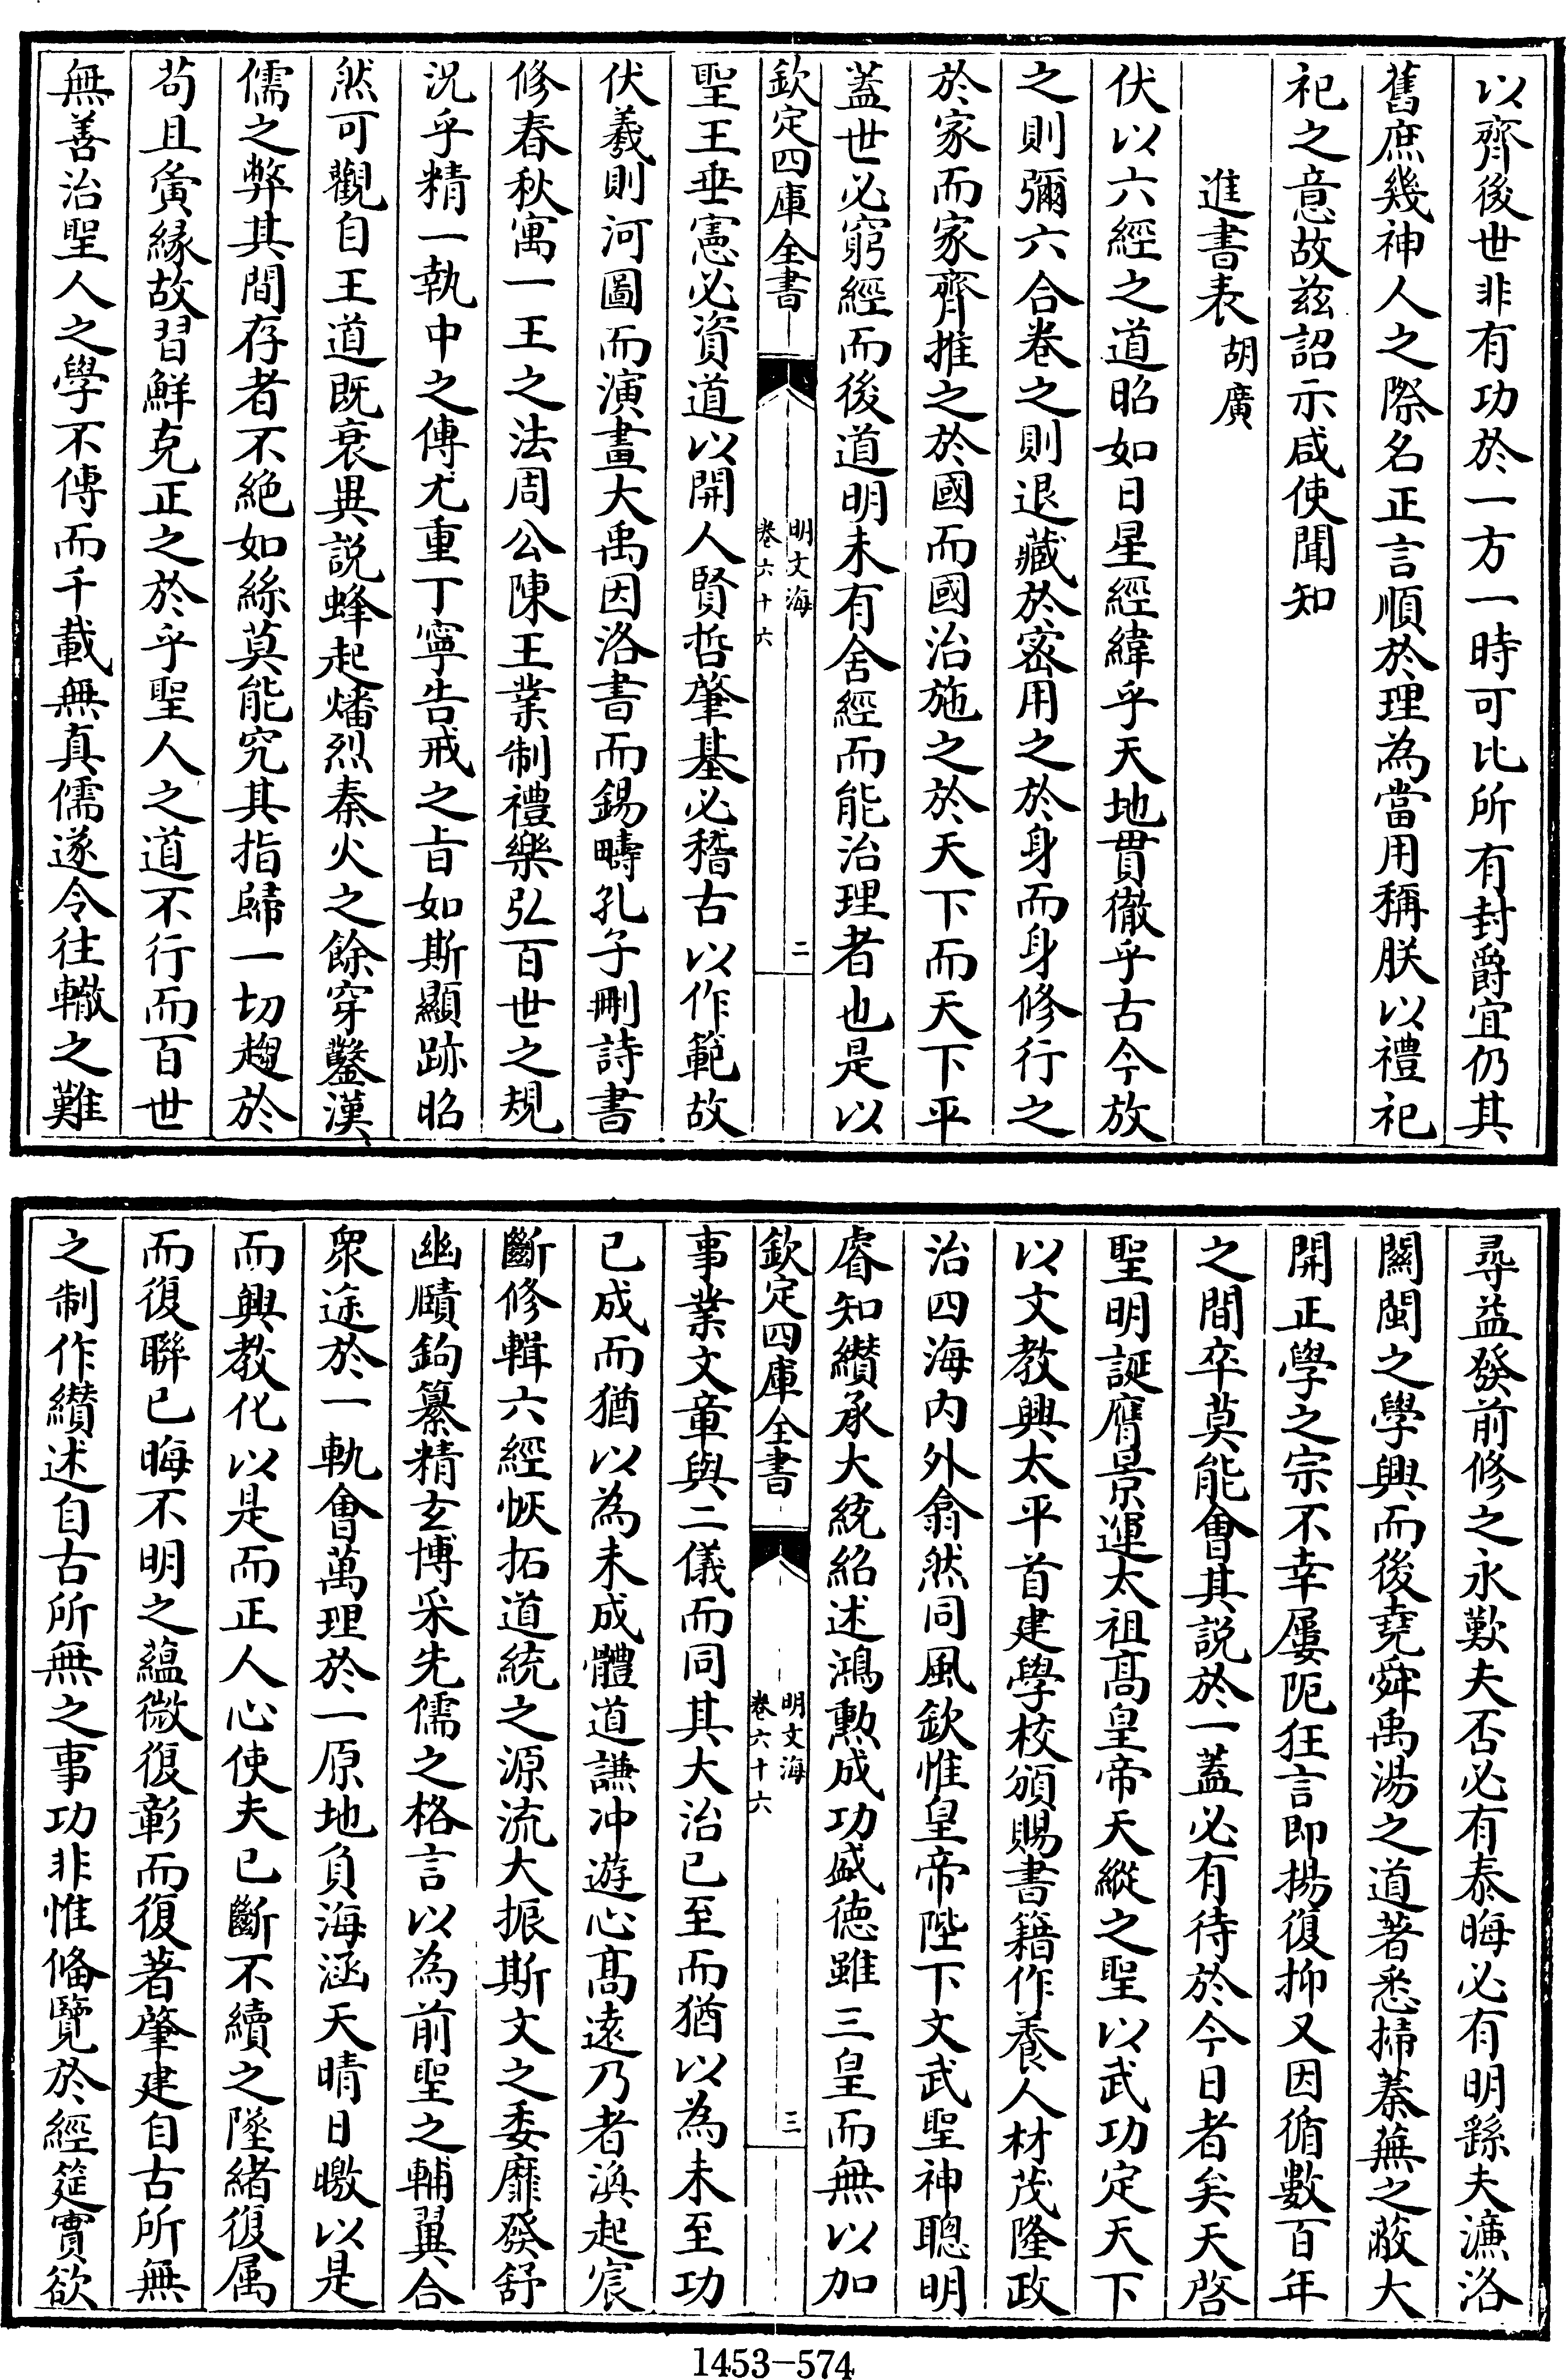 以齊後世非有功於一方一時可比所有封爵宜仍其
舊庶幾神人之際名正言順於理為當用稱朕以禮祀
祀之意故兹詔示咸使聞知
進書表 胡廣
伏以六經之道昭如日星經緯乎天地貫徹乎古今放
之則彌六合卷之則退藏於密用之於身而身修行之
於家而家齊推之於國而國治施之於天下而天下平
蓋世必窮經而後道明未有舍經而能治理者也是以
欽定四庫全書
明文海
卷六十六
二
聖王垂憲必資道以開人賢哲肇基必稽古以作範故
伏羲則河圖而演畫大禹因洛書而錫疇孔子刪詩書
修春秋寓一王之法周公陳王業制禮樂弘百世之規
況乎精一執中之傳尤重丁寧告戒之㫖如斯顯跡昭
然可觀自王道既衰異説蜂起燔烈秦火之餘穿鑿漢
儒之弊其間存者不絶如絲莫能究其指歸一切趨於
苟且夤縁故習鮮克正之於乎聖人之道不行而百世
無善治聖人之學不傳而千載無真儒遂令往轍之難
尋益發前修之永歎夫否必有泰晦必有明繇夫濂洛
關閩之學興而後堯舜禹湯之道著悉掃蓁蕪之蔽大
開正學之宗不幸屢阨狂言即揚復抑又因循數百年
之間卒莫能會其説於一蓋必有待於今日者矣天啓
聖明誕膺景運太祖高皇帝天縱之聖以武功定天下
以文教興太平首建學校頒賜書籍作養人材茂隆政
治四海内外翕然同風欽惟皇帝陛下文武聖神聰明
睿知纘承大統紹述鴻勲成功盛德雖三皇而無以加
欽定四庫全書
明文海
卷六十六
三
事業文章與二儀而同其大治已至而猶以為未至功
已成而猶以為未成體道謙冲遊心高遠乃者渙起宸
斷修輯六經恢拓道統之源流大振斯文之委靡發舒
幽賾鉤纂精玄博采先儒之格言以為前聖之輔翼合
衆途於一軌會萬理於一原地負海涵天晴日暾以是
而興教化以是而正人心使夫已斷不續之墜緒復属
而復聯已晦不明之蘊微復彰而復著肇建自古所無
之制作纘述自古所無之事功非惟備覽於經筵實欲
1453-574